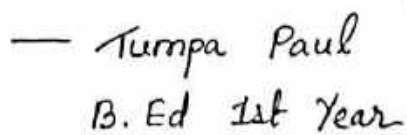 — Tumpa Paul
B. Ed 1st Year